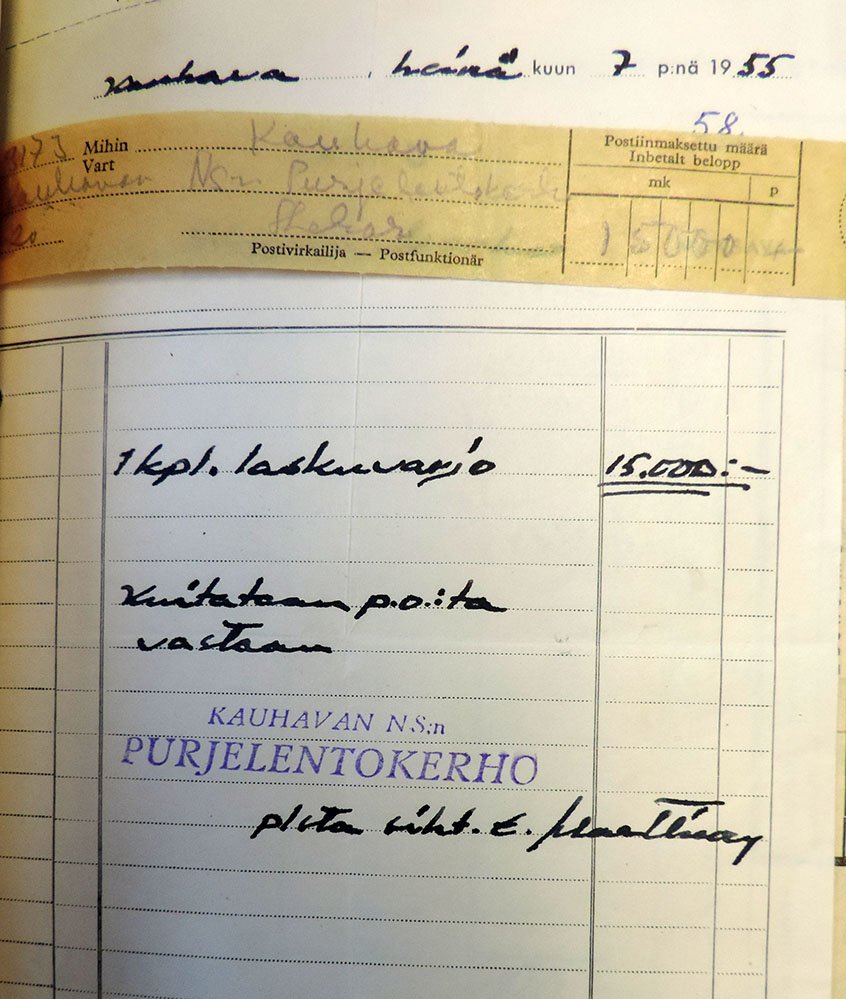 Kauhava, heinä kuun 7 p:nä 1955
58.
Mihin Kauhava
Vart
Kauhavan NS:n Purjelentokerho
20
Postivirkailija — Postfunktionär
Postiinmaksettu määrä
Inbetalt belopp
mk p
15000
1 kpl. laskuvarjo 15.000:-
Kuitataan p.o:ta
vastaan
KAUHAVAN NS:n
PURJELENTOKERHO
plsta siht. E.